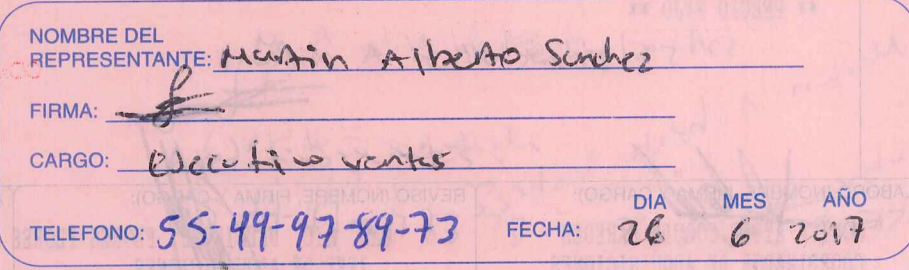 NOMBRE DEL
REPRESENTANTE: Martin Alberto Sanchez
FIRMA:
CARGO: Ejecutivo ventas
DIA MES AÑO
TELEFONO: 55-49-97-89-73 FECHA: 26 6 2017